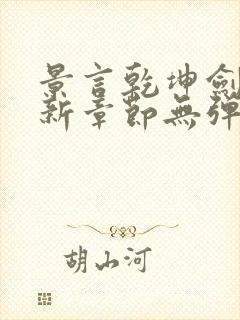 景言乾坤劍
新章節無彈
胡山河